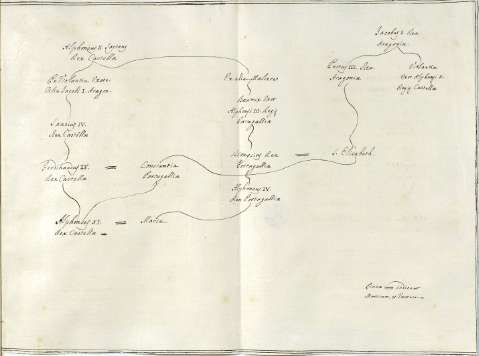 Jacobus I. Rex
Aragonia
Alphonsus X. Sapiens
Rex Castella
Ex Violanta Uxore
filia Jacobi I. Aragon.
Ex alia Muliere
Beatrix Uxor
Alphonsi III. Regis
Portugallia
Petrus III. Rex
Aragonia
Violanta
Uxor Alphonsi X.
Regis Castella
Sancius IV.
Rex Castella
Ferdinandus IV.
Rex Castella
=
Constantia
Portugallia
Dionysius Rex
Portugallia
=
S. Elisabeth
Alphonsus IV.
Rex Portugallia
Alphonsus XI.
Rex Castella
=
Maria